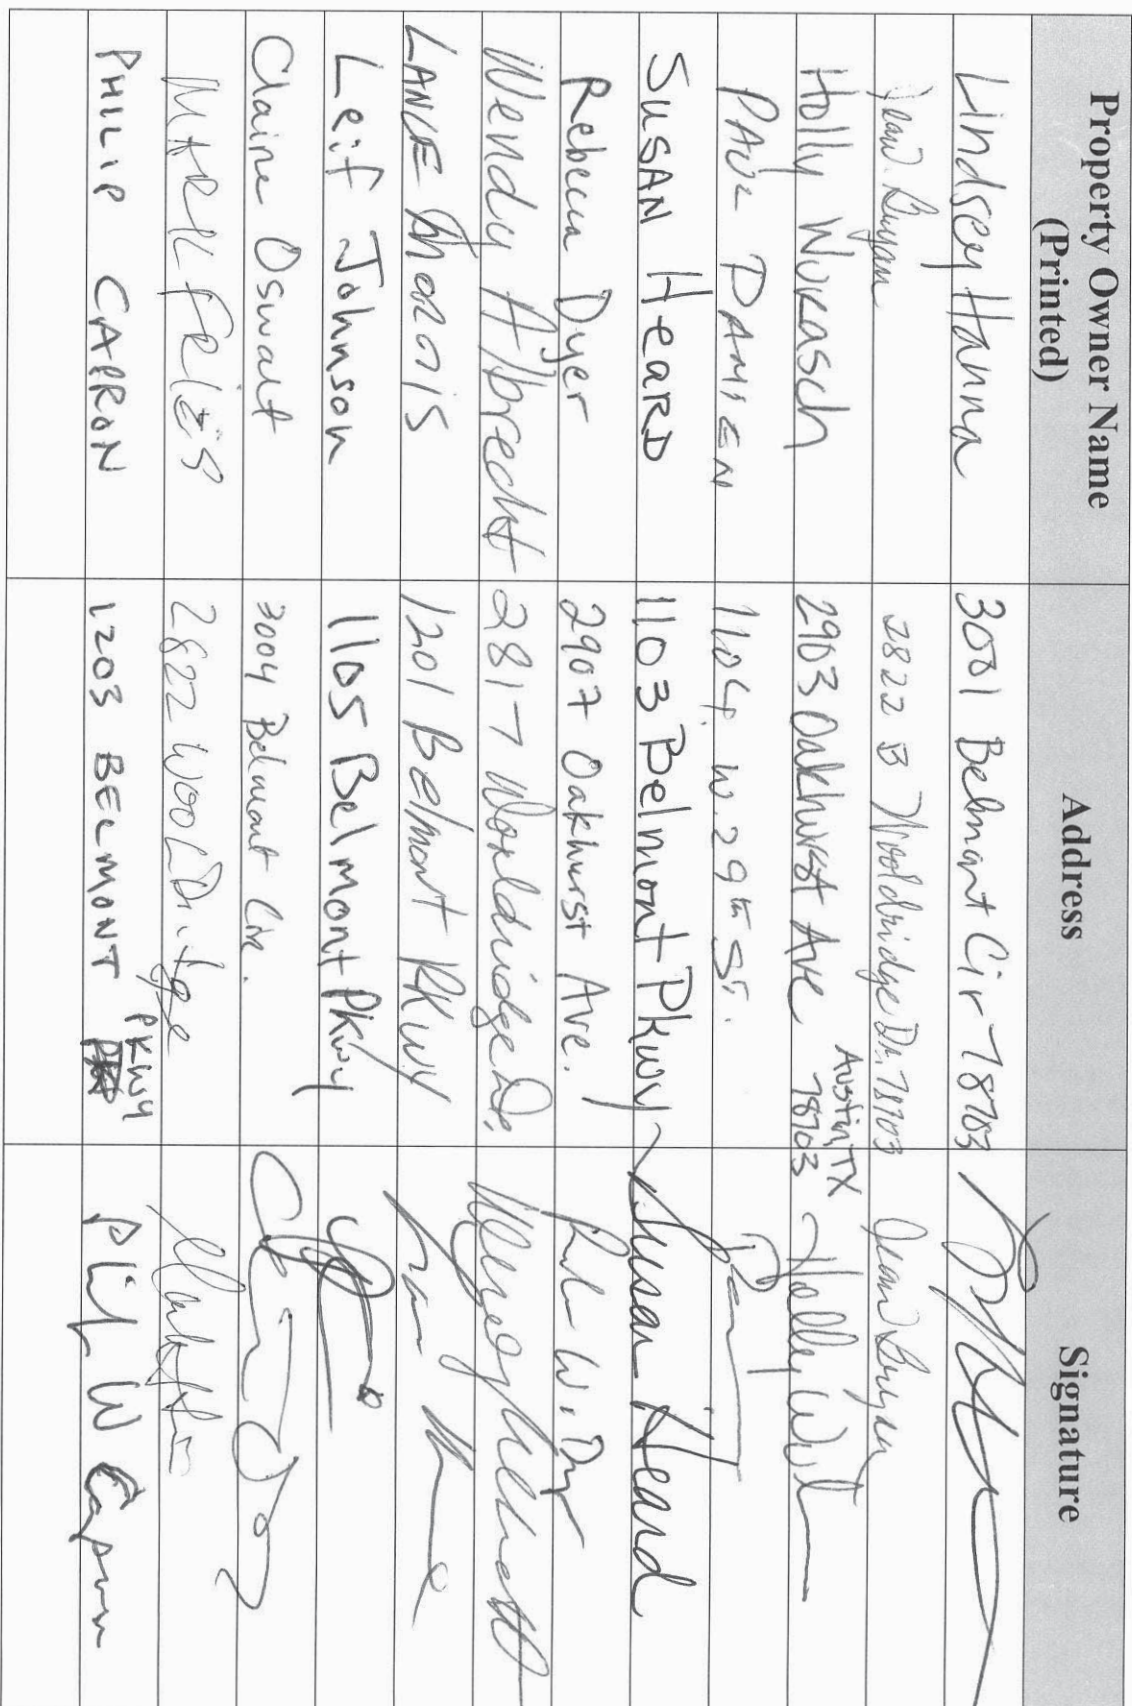 Property Owner Name
(Printed)
Address
Signature
Lindsey Hanna 3001 Belmont Cir 78703
Jean Bryan 2822 B Wooldridge Dr. 78703 Jean Bryan
Holly Wukasch 2903 Oakhurst Ave Austin, TX 78703 Holly
PAUL DAMIEN 1104 W. 29th ST.
SUSAN HEARD 1103 Belmont Pkwy Susan Heard
Rebecca Dyer 2907 Oakhurst Ave.
Wendy Albrecht 2817 Wooldridge Dr. Wendy Albrecht
LANCE 1201 Belmont PKWY
Leif Johnson 1105 Belmont Pkwy
Claire Oswalt 3004 Belmont Cir.
MARK FRIES 2822 WOOLDridge
PHILIP CAPRON 1203 BELMONT PKWY Phil W Capron